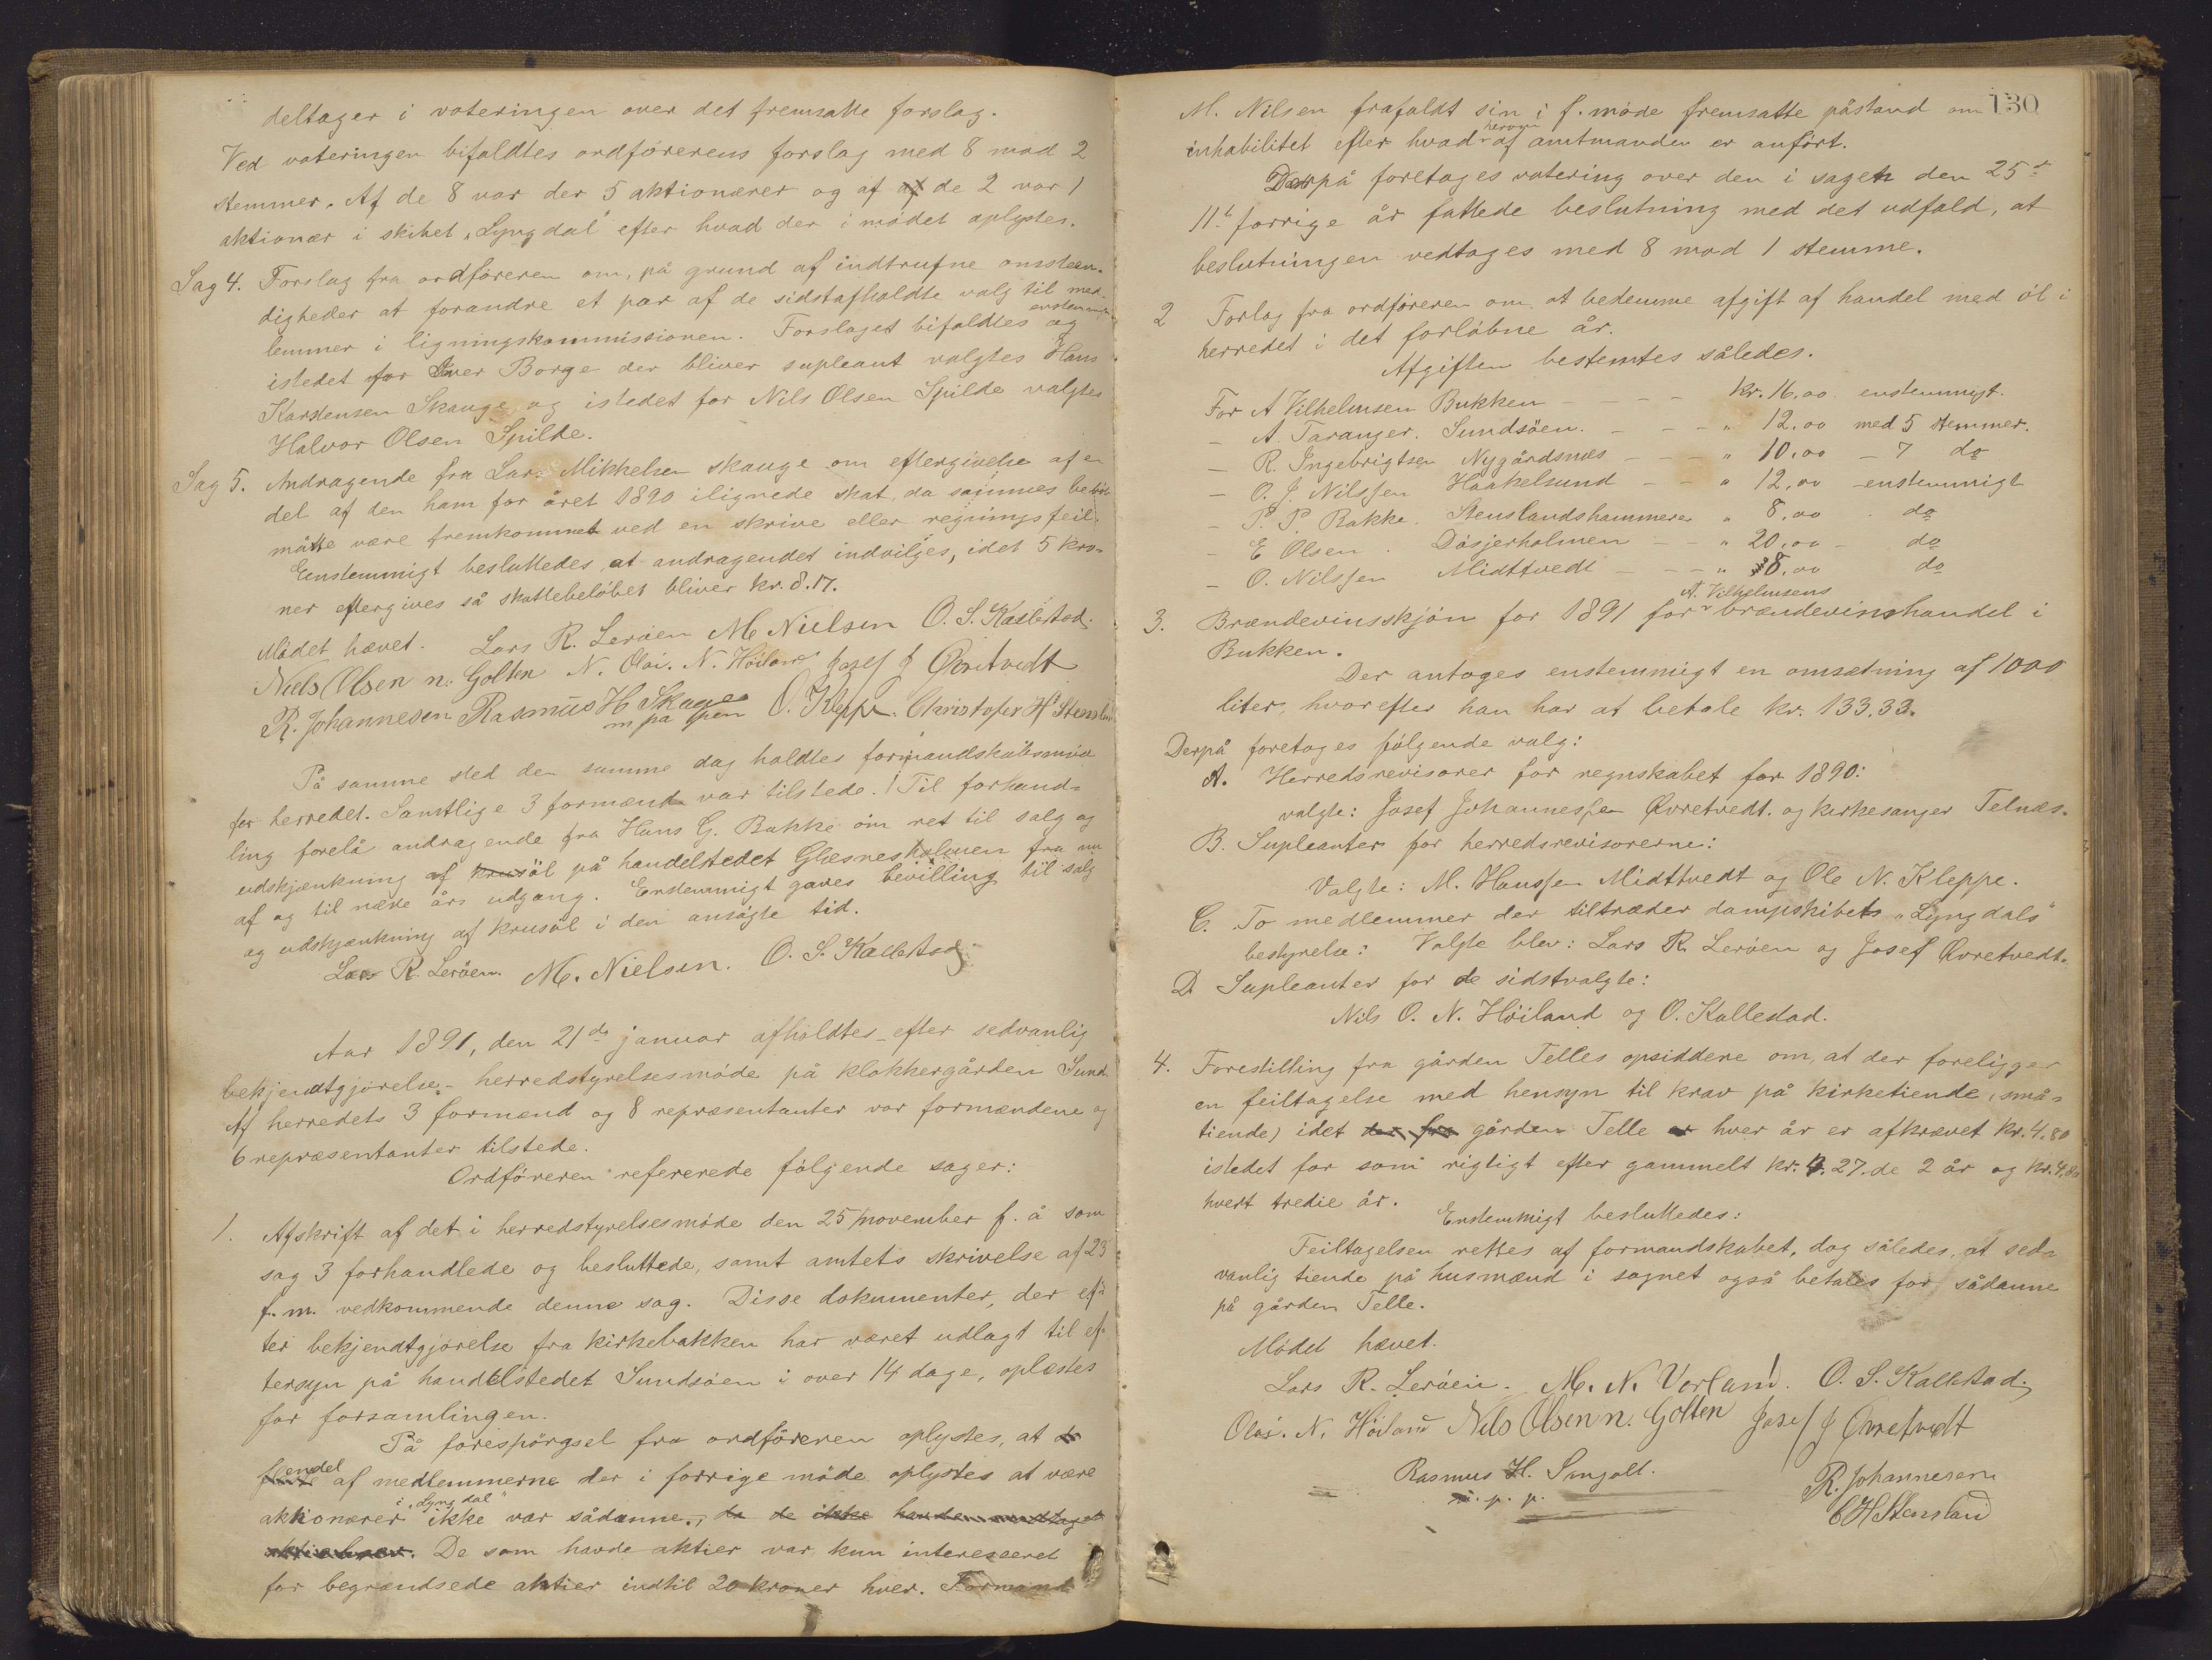 deltager i voteringen over det fremsatte forslag.
Ved voteringen bifaldtes ordförerens forslag med 8 mod 2
stemmer. Af de 8 var der 5 aktionærer og af de 2 var 1
aktionær i skibet „Lyngdal" efter hvad der i mödet oplystes.
Sag 4. Forslag fra ordföreren om, på grund af indtrufne omstæn-
digheder at forandre et par af de sidstafholdte valg til med-
lemmer i ligningskommissionen. Forslaget bifaldtes enstemmigt og
istedet for Iver Borge der bliver supleant valgtes Hans
Karstensen Skauge og istedet for Nils Olsen Spilde valgtes
Halvor Olsen Spilde.
Sag 5. Andragende fra Lars Mikkelsen skauge om eftergivelse af en
del af den ham for året 1890 ilignede skat, da sammes belöb
måtte være fremkommet ved en skrive eller regningsfeil.
Eenstemmigt besluttedes at andragendet indvilges, idet 5 kro-
ner eftergives så skattebelöbet bliver kr. 8.17.
Mödet hævet. Lars R. Leröen M Nielsen O. S. Kallestad.
Niels Olsen n. Golten N. Olai. N. Höiland Josef J Øvretvedt
R. Johannesen Rasmus H Skauge O. Kleppe. Christofer H Stensland
m på pen
På samme sted den samme dag holdtes formandskabsmöde
for herredet. Samtlige 3 formænd var tilstede. Til forhand-
ling forelå andragende fra Hans G. Bakke om ret til salg og
udskjænkning af krusöl på handelstedet Glæsnesholmen fra nu
af og til næste års udgang. Enstemmigt gaves bevilling til salg
og udskjænkning af krusöl i den ansögte tid.
Lars R. Leröen. M. Nielsen. O. S. Kallestad
Aar 1891, den 21de januar afholdtes efter sedvanlig
bekjendtgjörelse - herredstyrelsesmöde på klokkergården Sund.
Af herredets 3 formænd og 8 repræsentanter var formændene og
6 repræsentanter tilstede.
Ordföreren refererede fölgende sager:
1. Afskrift af det i herredstyrelsesmöde den 25 november f. å som
sag 3 forhandlede og besluttede, samt amtets skrivelse af 23
f. m. vedkommende denne sag. Disse dokumenter, der ef-
ter bekjendtgjörelse fra kirkebakken har været udlagt til ef-
tersyn på handelstedet Sundsöen i over 14 dage, oplæstes
for forsamlingen.
På forespörgsel fra ordföreren oplystes, at
endel af medlemmerne der i forrige möde oplystes at være
aktionærer i „Lyngdal" ikke var sådanne, da de ikke havde modtaget
De som havde aktier var kun interesseret
for begrændsede aktier indtil 20 kroner hver. Formand
130
M. Nilsen frafaldt sin i f. möde fremsatte påstand om
inhabilitet efter hvad herom af amtmanden er anfört.
Derpå foretages votering over den i sagen den 25de
11te forrige år fattede beslutning med det udfald, at
beslutningen vedtages med 8 mod 1 stemme.
2 Forlag fra ordföreren om at bedemme afgift af handel med öl i
herredet i det forlöbne år.
Afgiften bestemtes således.
For A Vilhelmsen Bukken - - - - kr. 16,00 enstemmigt.
- A. Taranger. Sundsöen. - - - " 12.00 med 5 stemmer.
- R. Ingebrigtsen Nygårdsnæs - - - " 10.00 - 7 do
- O. J. Nilssen Haakelsund - - " 12,00 - enstemmigt
- P. P. Bakke. Stenslandshammeren " 8,00 do
- E Olsen. Dösjerholmen - - " 20,00 - do
- O. Nilssen Midttvedt - - - " 8,00 do
3. Brændevinsskjön for 1891 for A. Vilhelmsens brændevinshandel i
Bukken.
Der antoges enstemmigt en omsætning af 1000
liter, hvorefter han har at betale kr. 133.33.
Derpå foretages fölgende valg:
A. Herredsrevisorer for regnskabet for 1890:
valgte: Josef Johannessen Øvretvedt. og kirkesanger Telnæs.
B. Supleanter for herredsrevisorerne:
Valgte: M. Hanssen Midttvedt og Ole N. Kleppe.
C. To medlemmer der tiltræder dampskibets „Lyngdals"
bestyrelse: Valgte blev: Lars R. Leröen og Josef Øvretvedt.
D. Supleanter for de sidstvalgte:
Nils O. N. Höiland og O. Kallestad.
4. Forestilling fra gården Telles opsiddere om, at der foreligger
en feiltagelse med hensyn til krav på kirketiende, (små-
tiende) idet der fra gården Telle er hver år er afkrævet kr. 4.80
istedet for som rigtigt efter gammelt kr. 4.27. de 2 år og kr. 4,80
hvert tredie år.
Enstemmigt besluttedes:
Feiltagelsen rettes af formandskabet, dog således, at sed-
vanlig tiende på husmænd i sognet også betales for sådanne
på gården Telle.
Mödet hævet.
Lars R. Leröen. M. N. Vorland. O. S. Kallestad.
Olai. N. Höiland Nils Olsen n. Golten Josef J Øvretvedt
Rasmus H. R. Johannesen
m. p. p. C H Stensland